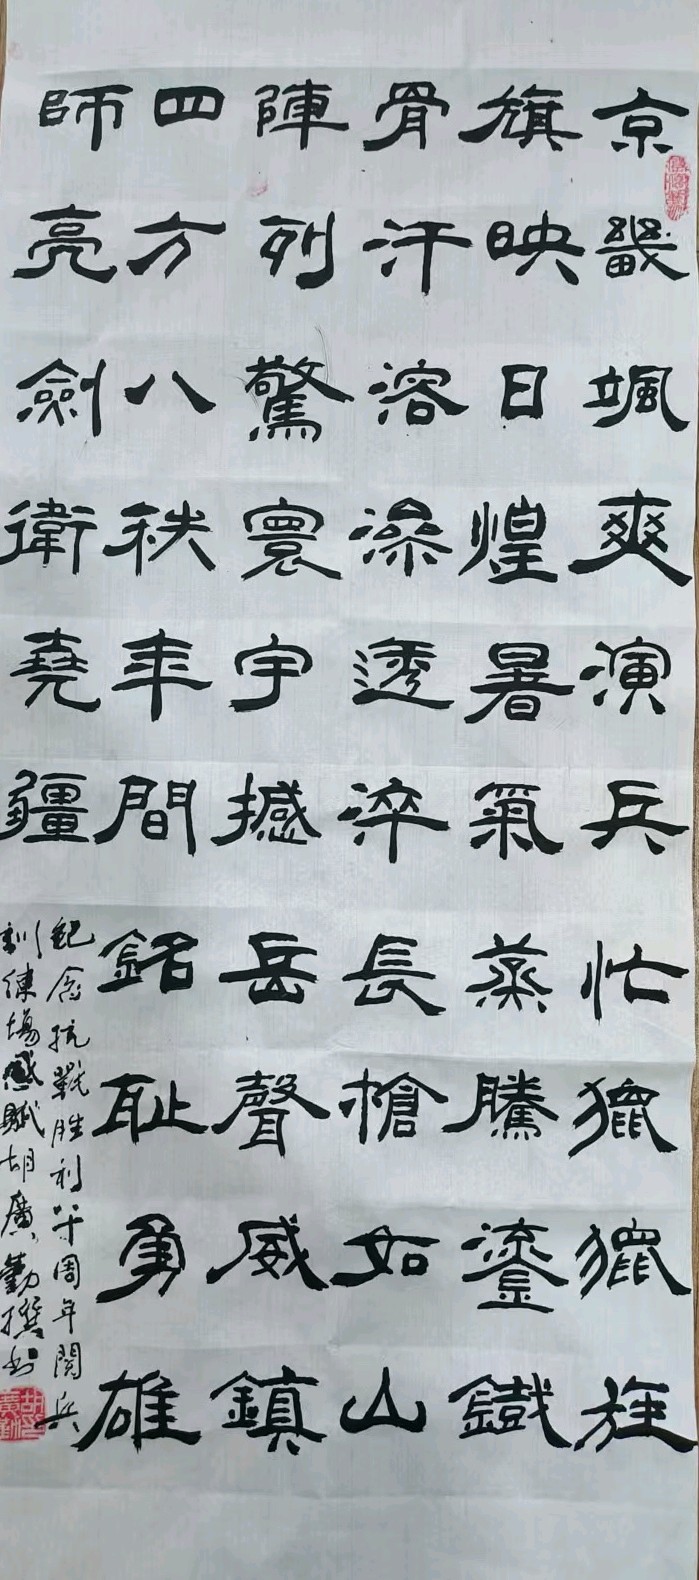 京畿颯爽演兵忙獵獵旌
旗映日煌暑氣蒸騰鎏鐵
骨汗溶澡透淬長槍如山
陣列驚寰宇撼岳聲威鎮
四方八秩年間銘耻勇雄
師亮劍衛堯疆
紀念抗戰胜利八十周年閱兵
訓練場感賦胡廣勤撰书